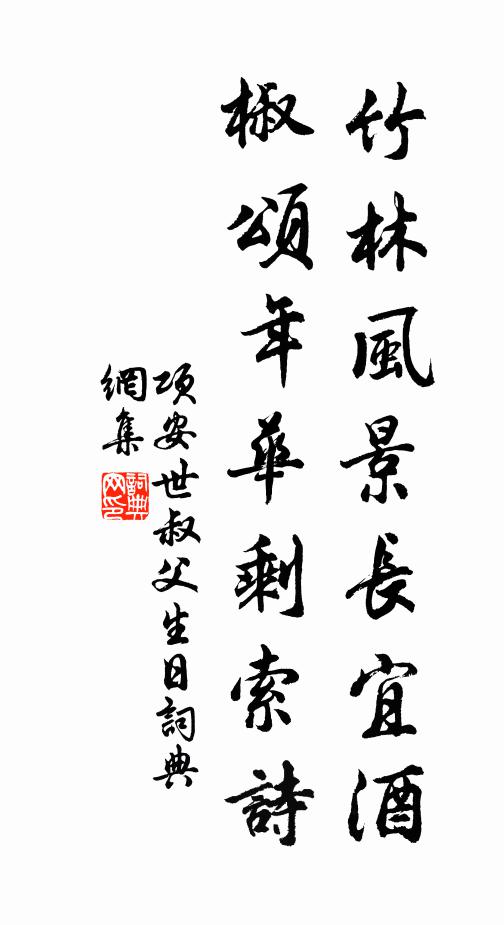 竹林風景長宜酒
椒頌年華剩索詩
項安世叔父生日詞典
網集
詞典
网印